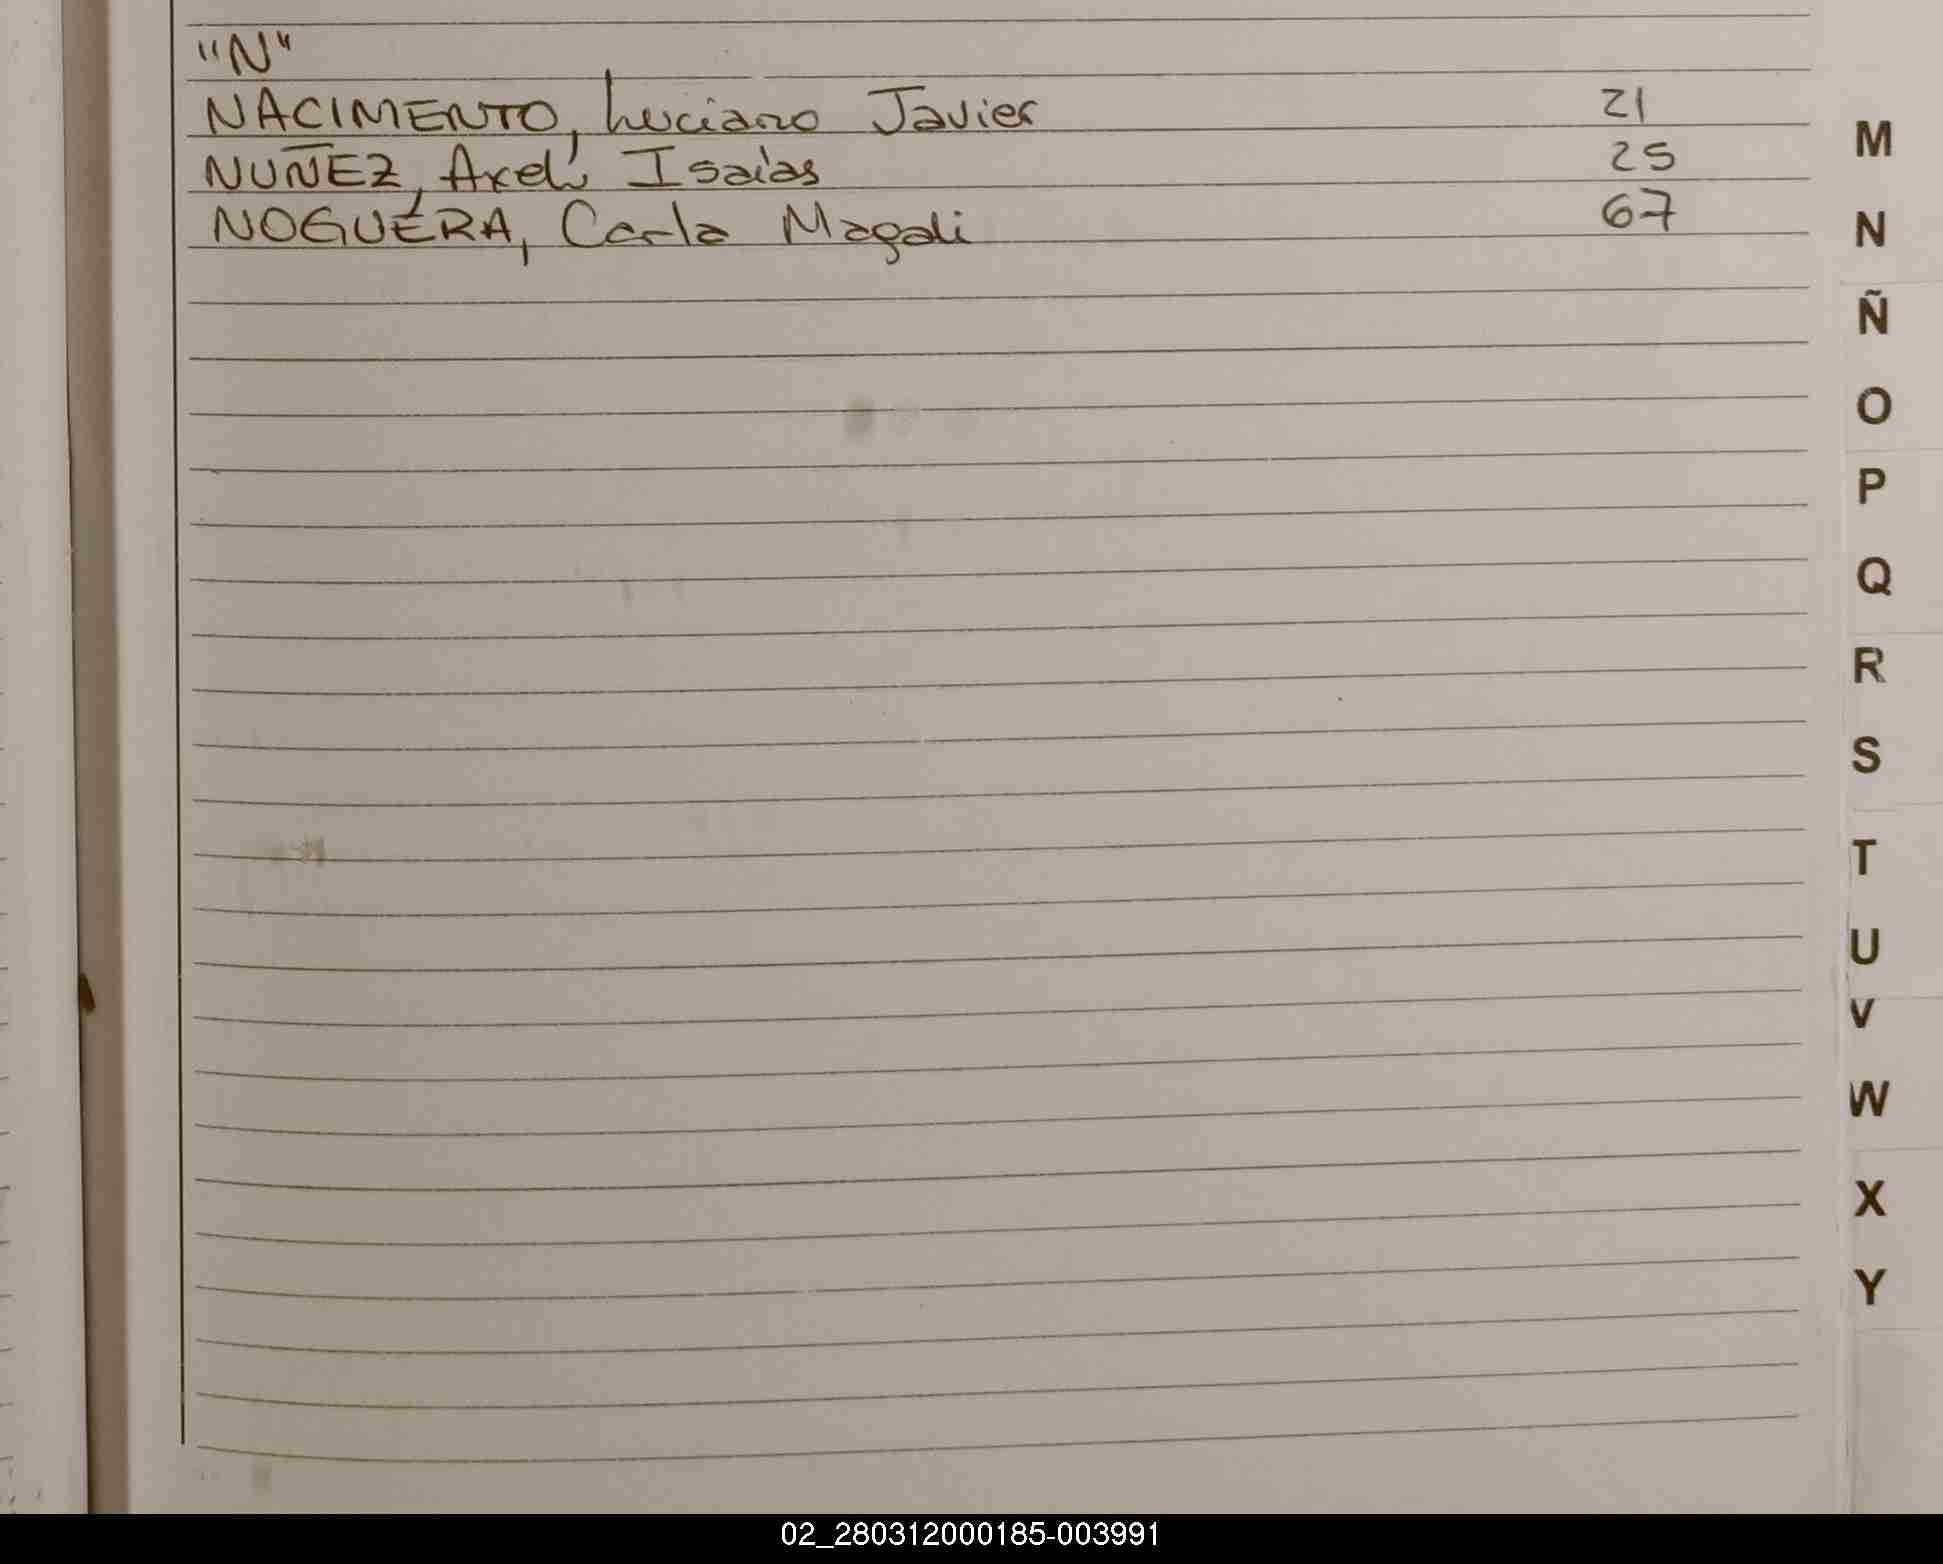 "N"
NACIMENTO, Luciano Javier 21
NUÑEZ, Axel Isaías 25
NOGUERA, Carla Magali 67
M
N
Ñ
O
P
Q
R
S
T
U
V
W
X
Y
02_280312000185-003991